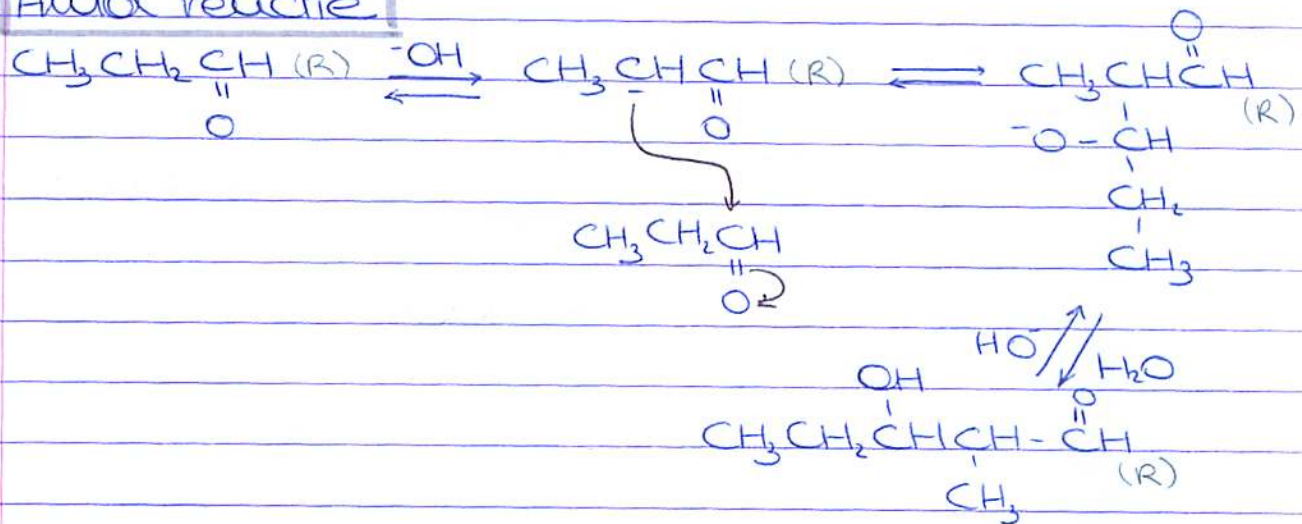 Aldol reactie
CH₃CH₂CH (R) ⁻OH ⇌ CH₃CHCH (R) ⇌ CH₃CHCH (R)
‖ O - ‖ O ‖ O
⁻O - CH
CH₂
CH₃
CH₃CH₂CH
‖
O
HO⁻ H₂O
OH O
‖
CH₃CH₂CHCH - CH
(R)
CH₃